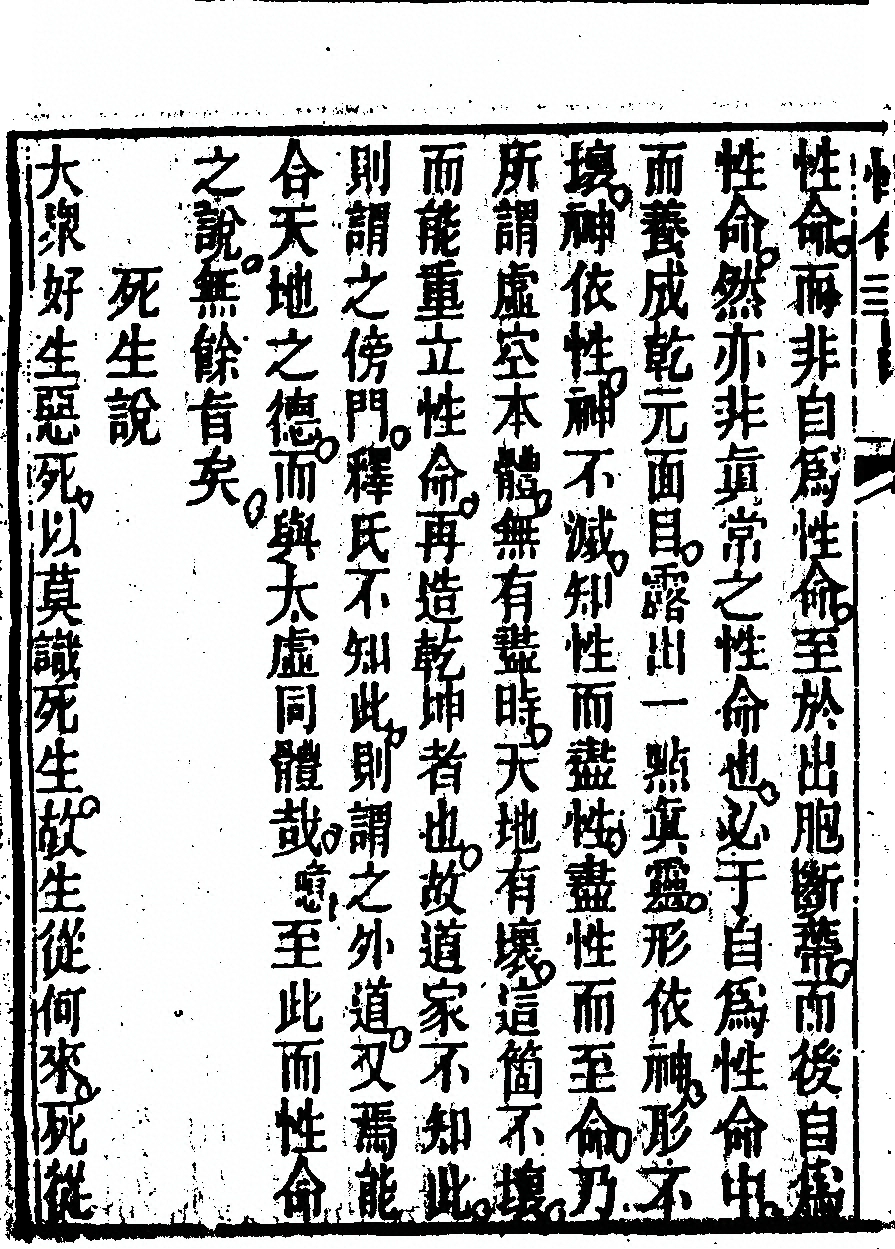 性命。而非自爲性命。至於出胞斷蒂。而後自爲
性命。然亦非眞常之性命也。必于自爲性命中。
而養成乾元面目。露出一點眞靈。形依神。形不
壞。神依性。神不滅。知性而盡性。盡性而至命。乃
所謂虛空本體。無有盡時。天地有壞。這箇不壞。
而能重立性命。再造乾坤者也。故道家不知此。
則謂之傍門。釋氏不知此。則謂之外道。又焉能
合天地之德。而與太虛同體哉。噫至此而性命
之說。無餘旨矣。
死生說
大衆好生惡死。以莫識死生。故生從何來。死從